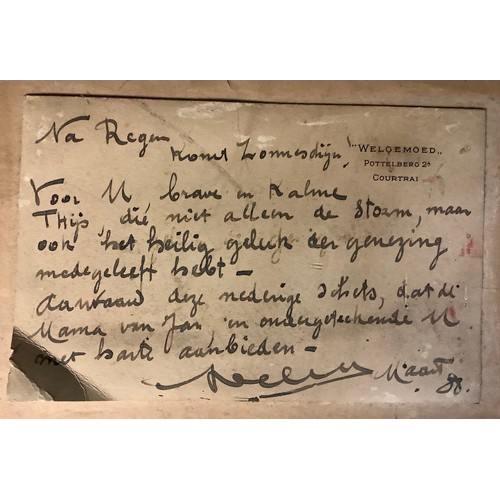 Na Regen
Komt Zonneschijn!
"WELGEMOED"
POTTELBERG 2A
COURTRAI
Voor U brave en Kalme
THijs die niet alleen de storm, maar
ook het heilig geluk der genezing
medegeleefd hebt -
Aanvaard deze nederige schets, dat de
Mama van Jan, en ondergeteekende U
met harte aanbieden -
Maart